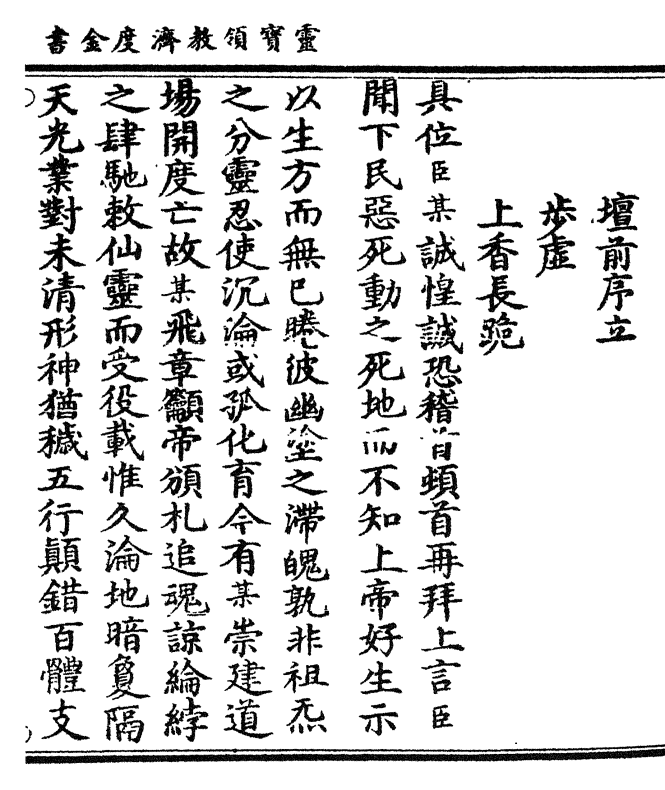 靈寶領教濟度金書
壇前序立
步虛
上香長跪
具位臣某誠惶誠恐稽首頓首再拜上言臣
聞下民惡死動之死地而不知上帝好生示
以生方而無已睠彼幽塗之滯魄孰非祖炁
之分靈忍使沉淪或孤化育今有某崇建道
場開度亡故某飛章籲帝頒札追魂諒綸綍
之肆馳敕仙靈而受役載惟久淪地暗夐隔
天光業對未清形神猶穢五行顛錯百體支